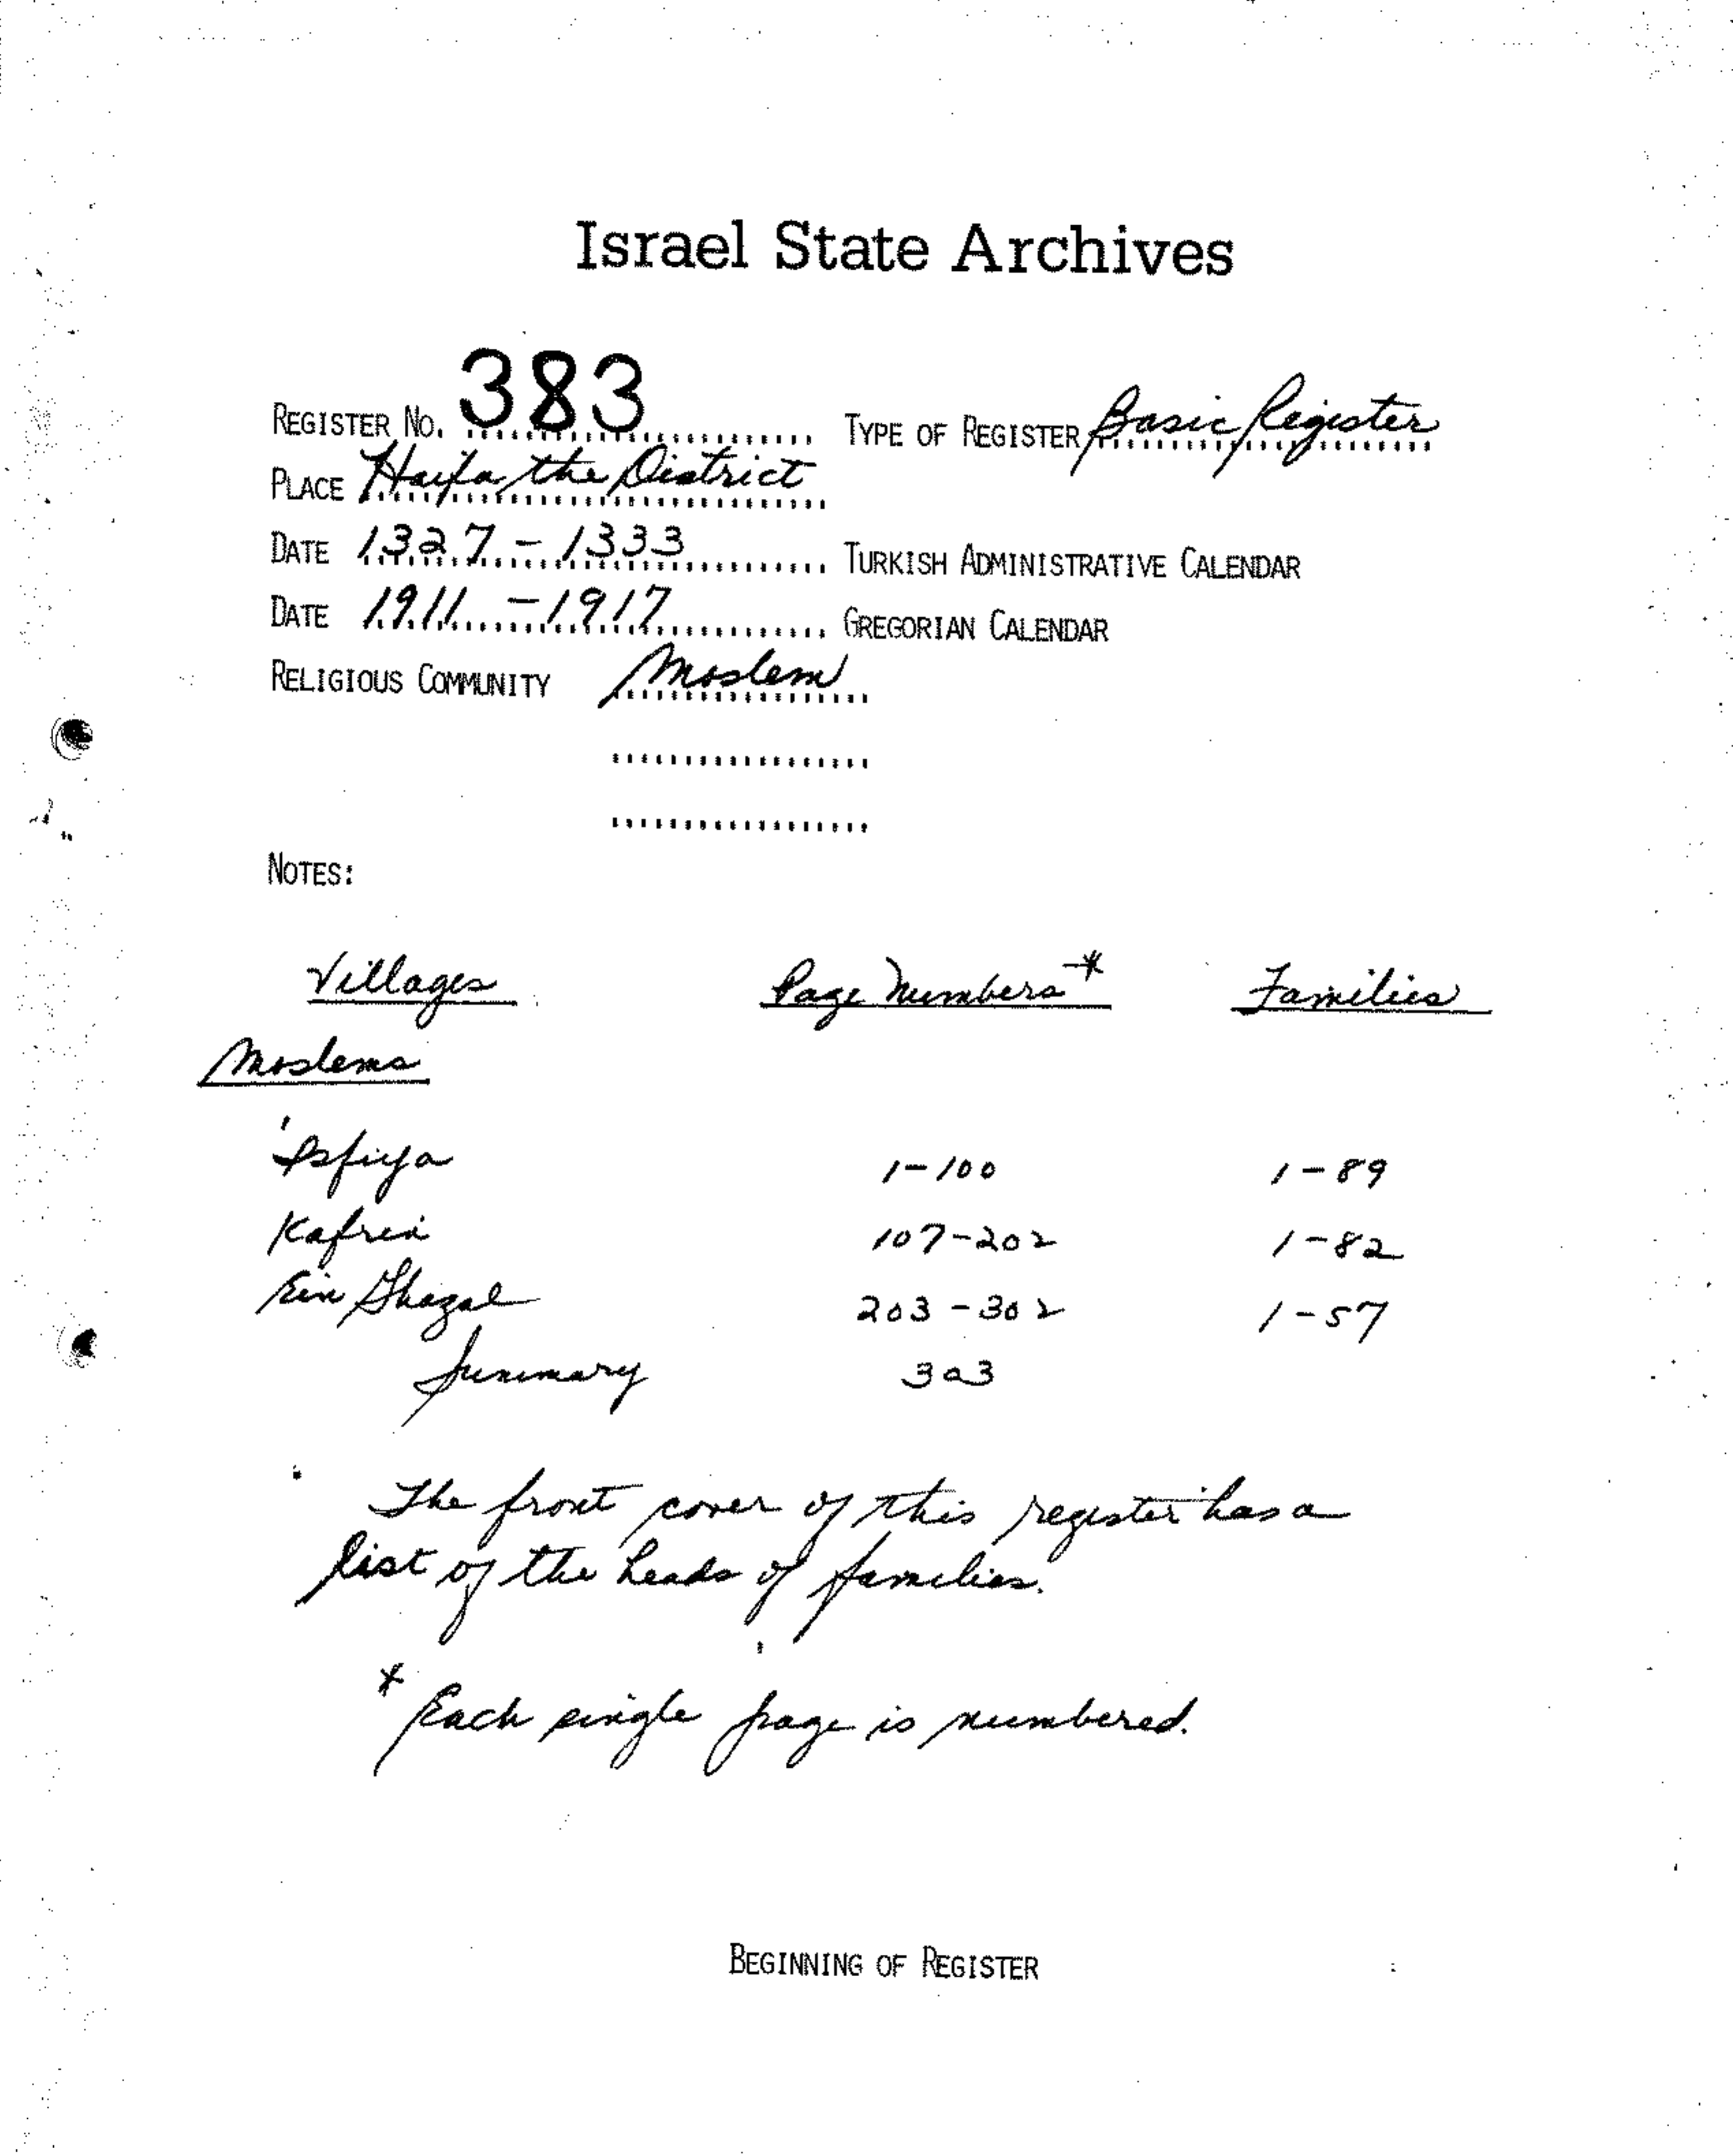 Israel State Archives
REGISTER NO. 383 TYPE OF REGISTER Basic Register
PLACE Haifa the District
DATE 1327 - 1333 TURKISH ADMINISTRATIVE CALENDAR
DATE 1911 - 1917 GREGORIAN CALENDAR
RELIGIOUS COMMUNITY Moslem
NOTES:
Villages Page Numbers* Families
Moslems
'Isfiya 1-100 1-89
Kafrin 107-202 1-82
Ein Ghazal 203-302 1-57
Summary 303
The front cover of this register has a
list of the heads of families.
* Each single page is numbered.
BEGINNING OF REGISTER